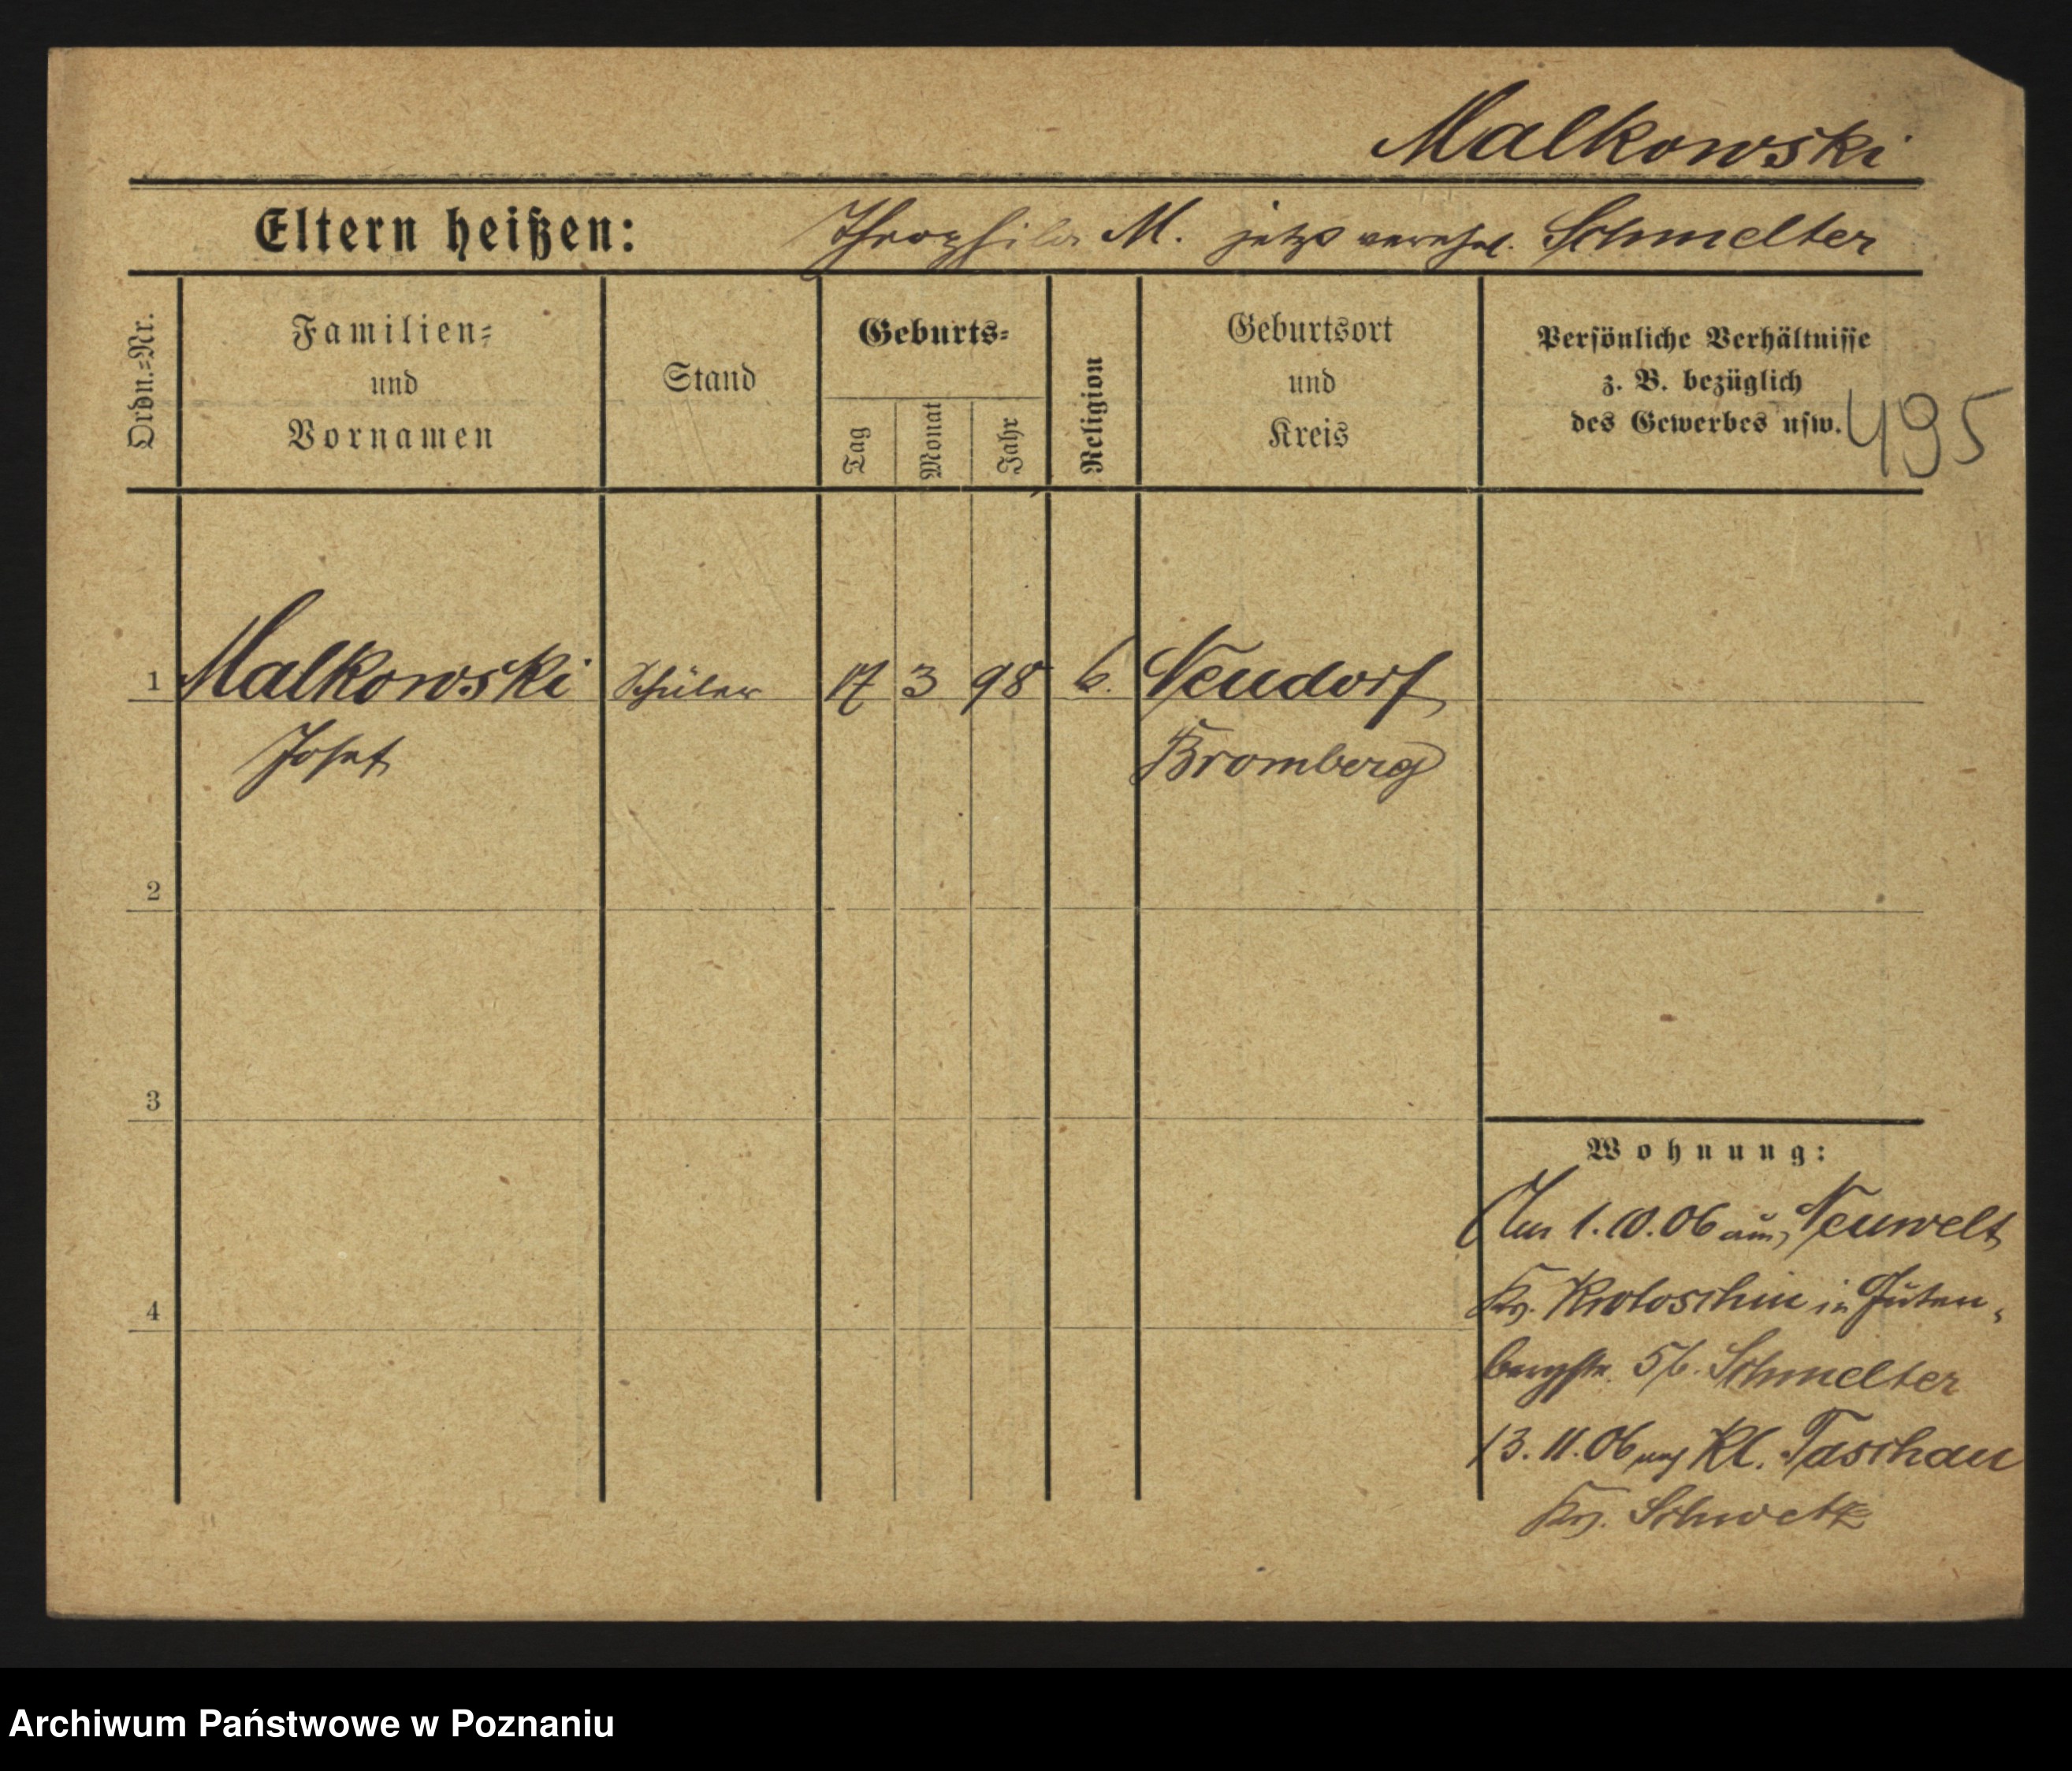 Malkowski
Eltern heißen: Theophila M. jetzt verehel. Schmelter
Ordn.=Nr.
Familien=
und
Vornamen
Stand
Geburts=
Tag
Monat
Jahr
Religion
Geburtsort
und
Kreis
Persönliche Verhältnisse
z. B. bezüglich
des Gewerbes usw.
495
1 Malkowski Schüler 17 3 98 k. Neudorf
Josef Bromberg
2
3
4
Wohnung:
Am 1.10.06 aus Neuwelt
Kr. Krotoschin in Guten-
bergstr. 5b. Schmelter
13.11.06 nach Kl. Taschau
Kr. Schwetz
Archiwum Państwowe w Poznaniu